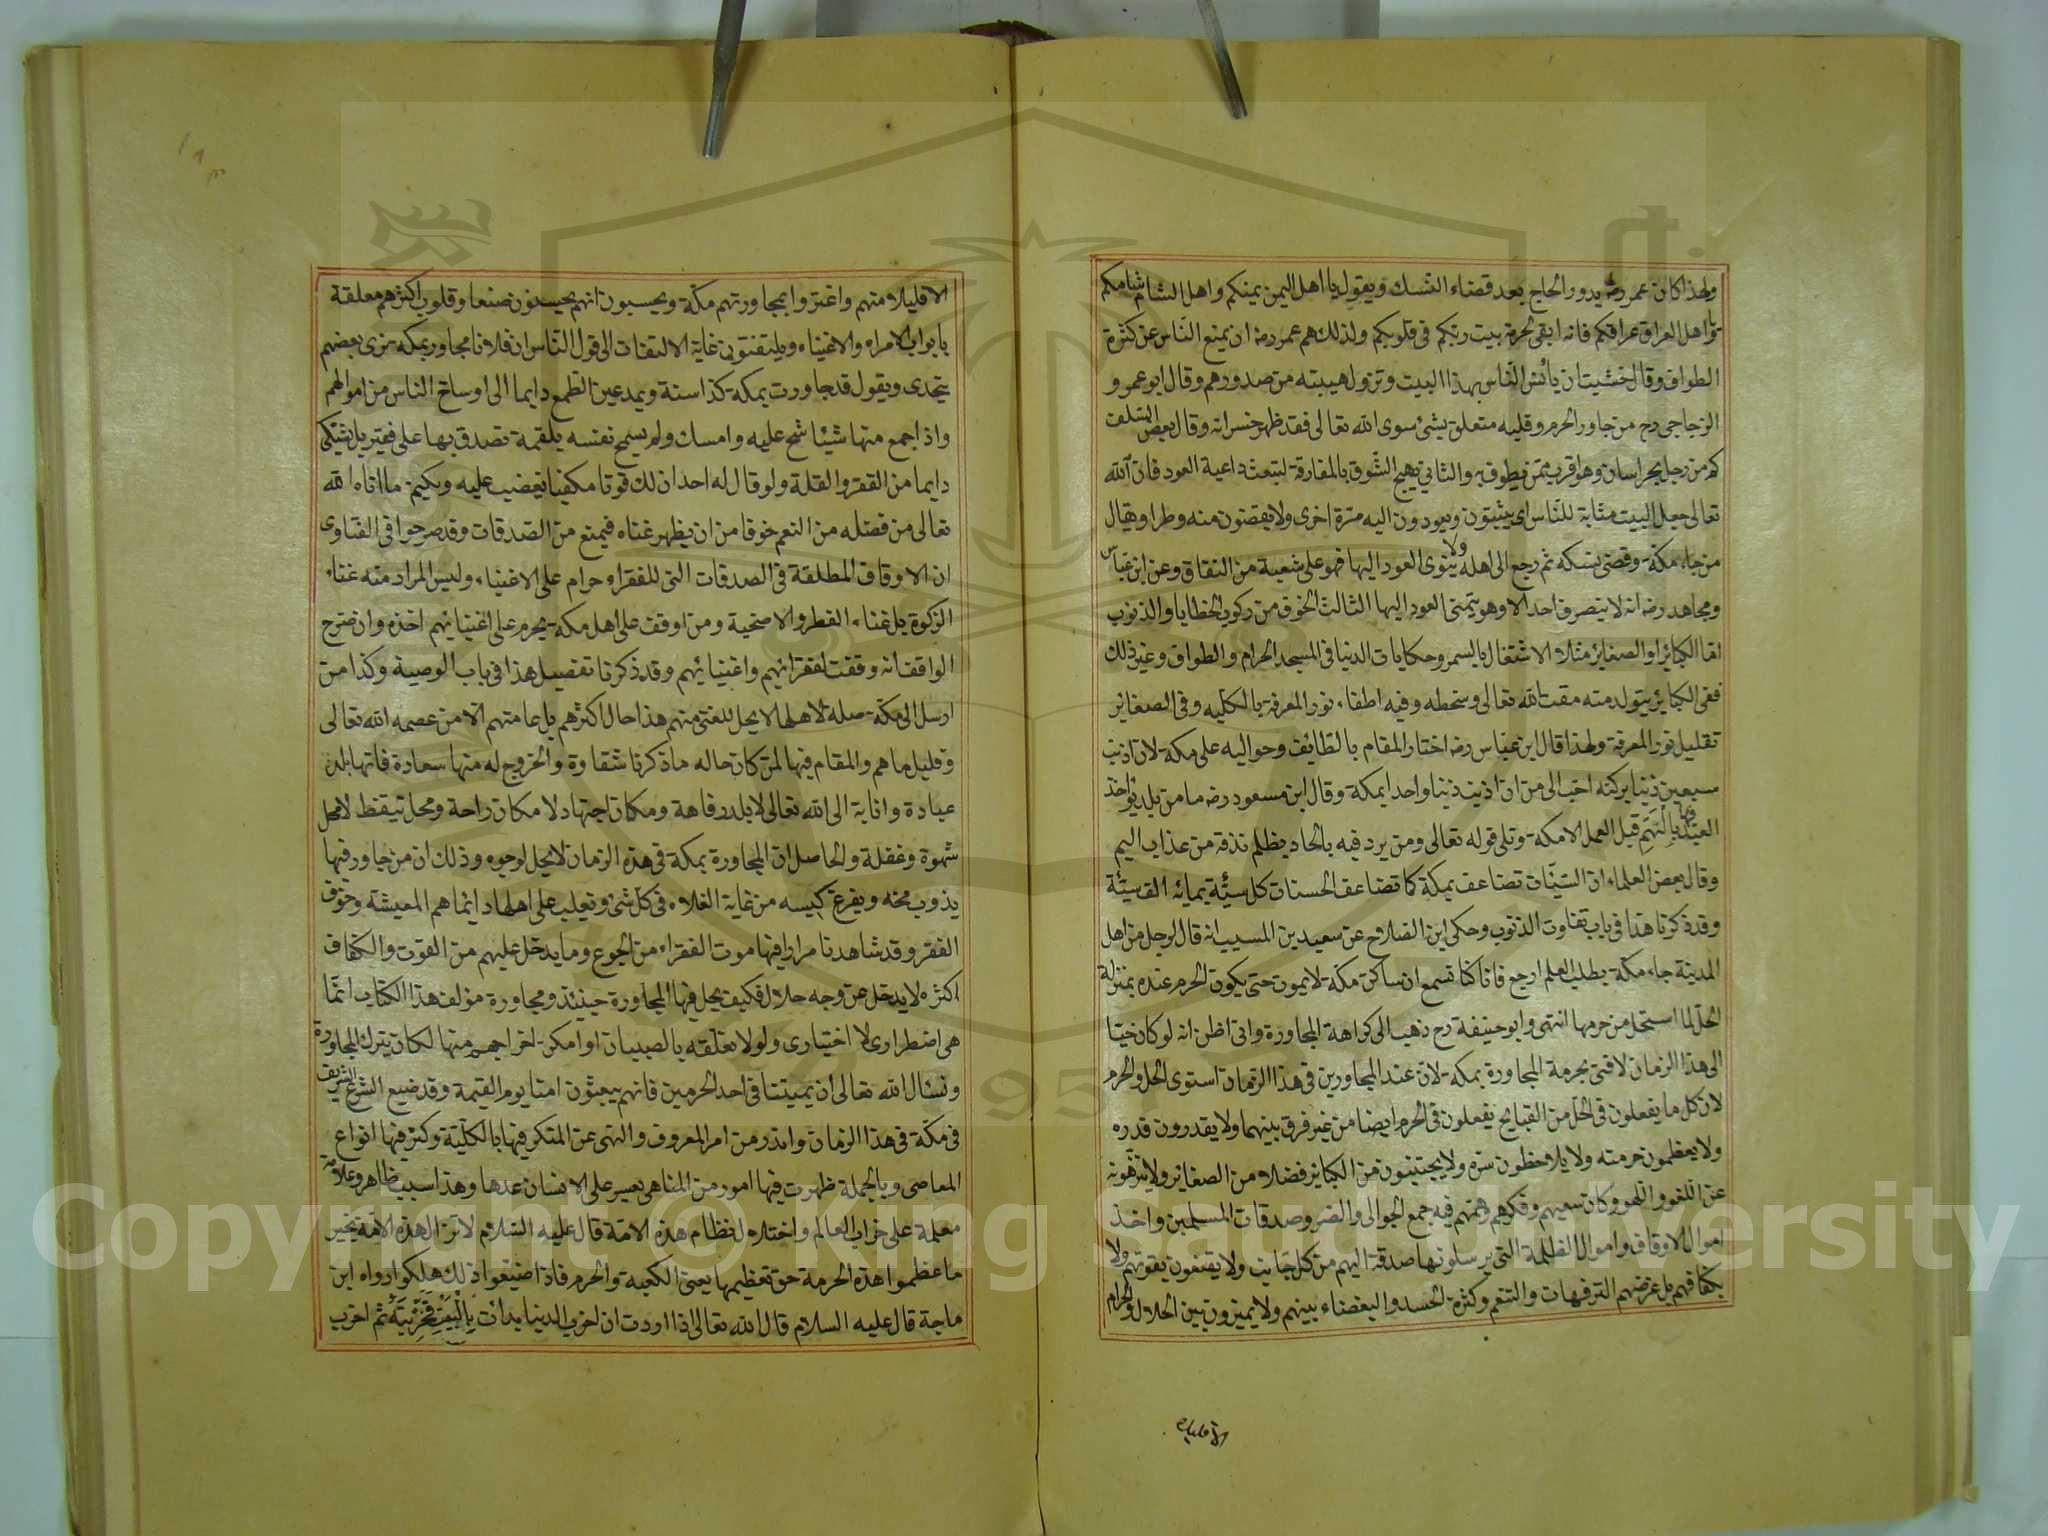 ولهذا كان عمر رضه يدور الحاج بعد قضاء النسك ويقول يا اهل اليمن يمنكم واهل الشام شامكم
ويا اهل العراق عراقكم فانه ابقى لحرمة بيت ربكم فى قلوبكم ولذلك هم عمر رضه ان يمنع الناس عن كثرة
الطواف وقال خشيت ان يأنس الناس بهذا البيت وتزول هيبته من صدورهم وقال ابو عمرو
الزجاجى رح من جاور الحرم وقلبه متعلق بشئ سوى الله تعالى فقد ظهر خسرانه وقال بعض السلف
كم من رجل بخراسان وهو اقرب ممن يطوف به والثانى تهيج الشوق بالمفارقة لتبعث داعية العود فان الله
تعالى جعل البيت مثابة للناس اى يثبتون ويعودون اليه مرة اخرى ولا يقضون منه وطرا ويقال
من جاء مكة وقضى نسكه ثم رجع الى اهله ولا ينوى العود اليها فهو على شعبة من النفاق وعن ابن عباس
ومجاهد رضه انه لا ينصرف احد الا وهو يتمنى العود اليها الثالث الخوف من ركوب الخطايا والذنوب
اما الكبائر او الصغاير مثلا الاشتغال بالسمر وحكايات الدنيا فى المسجد الحرام والطواف وغير ذلك
ففى الكبائر يتولد منه مقت الله تعالى وسخطه وفيه اطفاء نور المعرفة بالكليه وفى الصغائر
تقليل نور المعرفة ولهذا قال ابن عباس رضه اختار المقام بالطائف وحواليه على مكة لان اذنب
سبعين ذنبا بركته احب الى من ان اذنب ذنبا واحدا بمكة وقال ابن مسعود رضه ما من بلد يؤاخذ
فيها العبد بالهم قبل العمل الا مكة وتلى قوله تعالى ومن يرد فيه بالحاد بظلم نذقه من عذاب اليم
وقال بعض العلماء ان السيئات تضاعف بمكة كما تضاعف الحسنات كل سيئة بمائه الف سيئة
وقد ذكرنا هذا فى باب تفاوت الذنوب وحكى ابن الصلاح عن سعيد بن المسيب انه قال لرجل من اهل
المدينة جاء مكة بطلب العلم ارجع فانا كنا نسمع ان ساكن مكة لا يموت حتى يكون الحرم عنده بمنزلة
الحل لما استحل من حرمها انتهى وابو حنيفة رح ذهب الى كراهة المجاورة وانى اظن انه لو كان حيا
الى هذا الزمان لافتى بحرمة المجاورة بمكة لان عند المجاورين فى هذا الزمان استوى الحل والحرم
لان كل ما يفعلون فى الحل من القبايح يفعلون فى الحرم ايضا من غير فرق بينهما ولا يقدرون قدره
ولا يعظمون حرمته ولا يلاحظون سره ولا يجتنبون من الكبائر فضلا من الصغاير ولا يتنزهونه
عن اللغو واللهو وكان سعيهم وفكرهم وهمتهم فيه جمع الجوالى والصر وصدقات المسلمين واخذ
اموال الاوقاف واموال الظلمة التى يرسلونها صدقة اليهم من كل جانب ولا يقنعون بقوتهم ولا
بكفافهم بل غرضهم الترفهات والتنعم وكثرة الحسد والبغضاء بينهم ولا يميزون بين الحلال والحرام
الا قليلا
الا قليلا منهم واغتروا بمجاورتهم مكة ويحسبون انهم يحسنون صنعا وقلوب اكثرهم معلقة
بابواب الامراء والاغنياء ويلتفتون غاية الالتفات الى قول الناس ان فلانا مجاور بمكة نرى بعضهم
يتحدى ويقول قد جاورت بمكة كذا سنة ويمد عين الطمع دايما الى اوساخ الناس من اموالهم
واذا جمع منها شيئا شح عليه وامسك ولم يسمح نفسه بلقمة تصدق بها على فقير بل يشتكى
دايما من الفقر والقلة ولو قال له احد ان لك قوتا مكفيا تغضب عليه ويكتم ما اتاه الله
تعالى من فضله من النعم خوفا من ان يظهر غناه فيمنع من الصدقات وقد صرحوا فى الفتاوى
ان الاوقاف المطلقة فى الصدقات التى للفقراء حرام على الاغنياء وليس المراد منه غناء
الزكوة بل غناء الفطر والاضحية ومن اوقف على اهل مكة يحرم على اغنيائهم اخذه وان صرح
الواقف انه وقفت لفقرائهم واغنيائهم وقد ذكرنا تفصيل هذا فى باب الوصية وكذا من
ارسل الى مكة صلة لاهلها لا يحل للغنى منهم هذا حال اكثرهم بل عامتهم الا من عصمه الله تعالى
وقليل ما هم والمقام فيها لمن كان حاله ما ذكرنا شقاوة والخروج له منها سعادة فانها بلد
عبادة وانابة الى الله تعالى لا بلد رفاهة ومكان اجتهاد لا مكان راحة ومحل تيقظ لا محل
شهوة وغفلة والحاصل ان المجاورة بمكة فى هذه الزمان لا يحل لوجوه وذلك ان من جاور فيها
يذوب مخه ويفرغ كيسه من غاية الغلاء فى كل شئ وتغلب على اهلها دائما هم المعيشة وخوف
الفقر وقد شاهدنا مرارا فيها موت الفقراء من الجوع وما يدخل عليهم من القوت والكفاف
اكثره لا يدخل عن وجه حلال فكيف يحل فيها المجاورة حينئذ ومجاورة مؤلف هذا الكتاب انما
هى اضطرارى لا اختيارى ولولا تعلقه بالصبيان او امكن اخراجهم منها لكان يترك المجاورة
ونسئال الله تعالى ان يميتنا فى احد الحرمين فانهم يبعثون امنا يوم القيمة وقد ضيع الشرع الشريف
فى مكة فى هذا الزمان واندرس امر المعروف والنهى عن المنكر فيها بالكلية وكثر فيها انواع
المعاصى وبالجملة ظهرت فيها امور من المناهى يعسر على الانسان عدها وهذا سبب ظاهر وعلامة
معلمة على خراب العالم واختلاء لنظام هذه الامة قال عليه السلام لا تزال هذه الامة بخير
ما عظموا هذه الحرمة حق تعظيمها يعنى الكعبة والحرم فاذا ضيعوا ذلك هلكوا رواه ابن
ماجة قال عليه السلام قال الله تعالى اذا اردت ان اخرب الدنيا بدات بالبيت فخربته ثم اخرب
Copyright © King Saud University